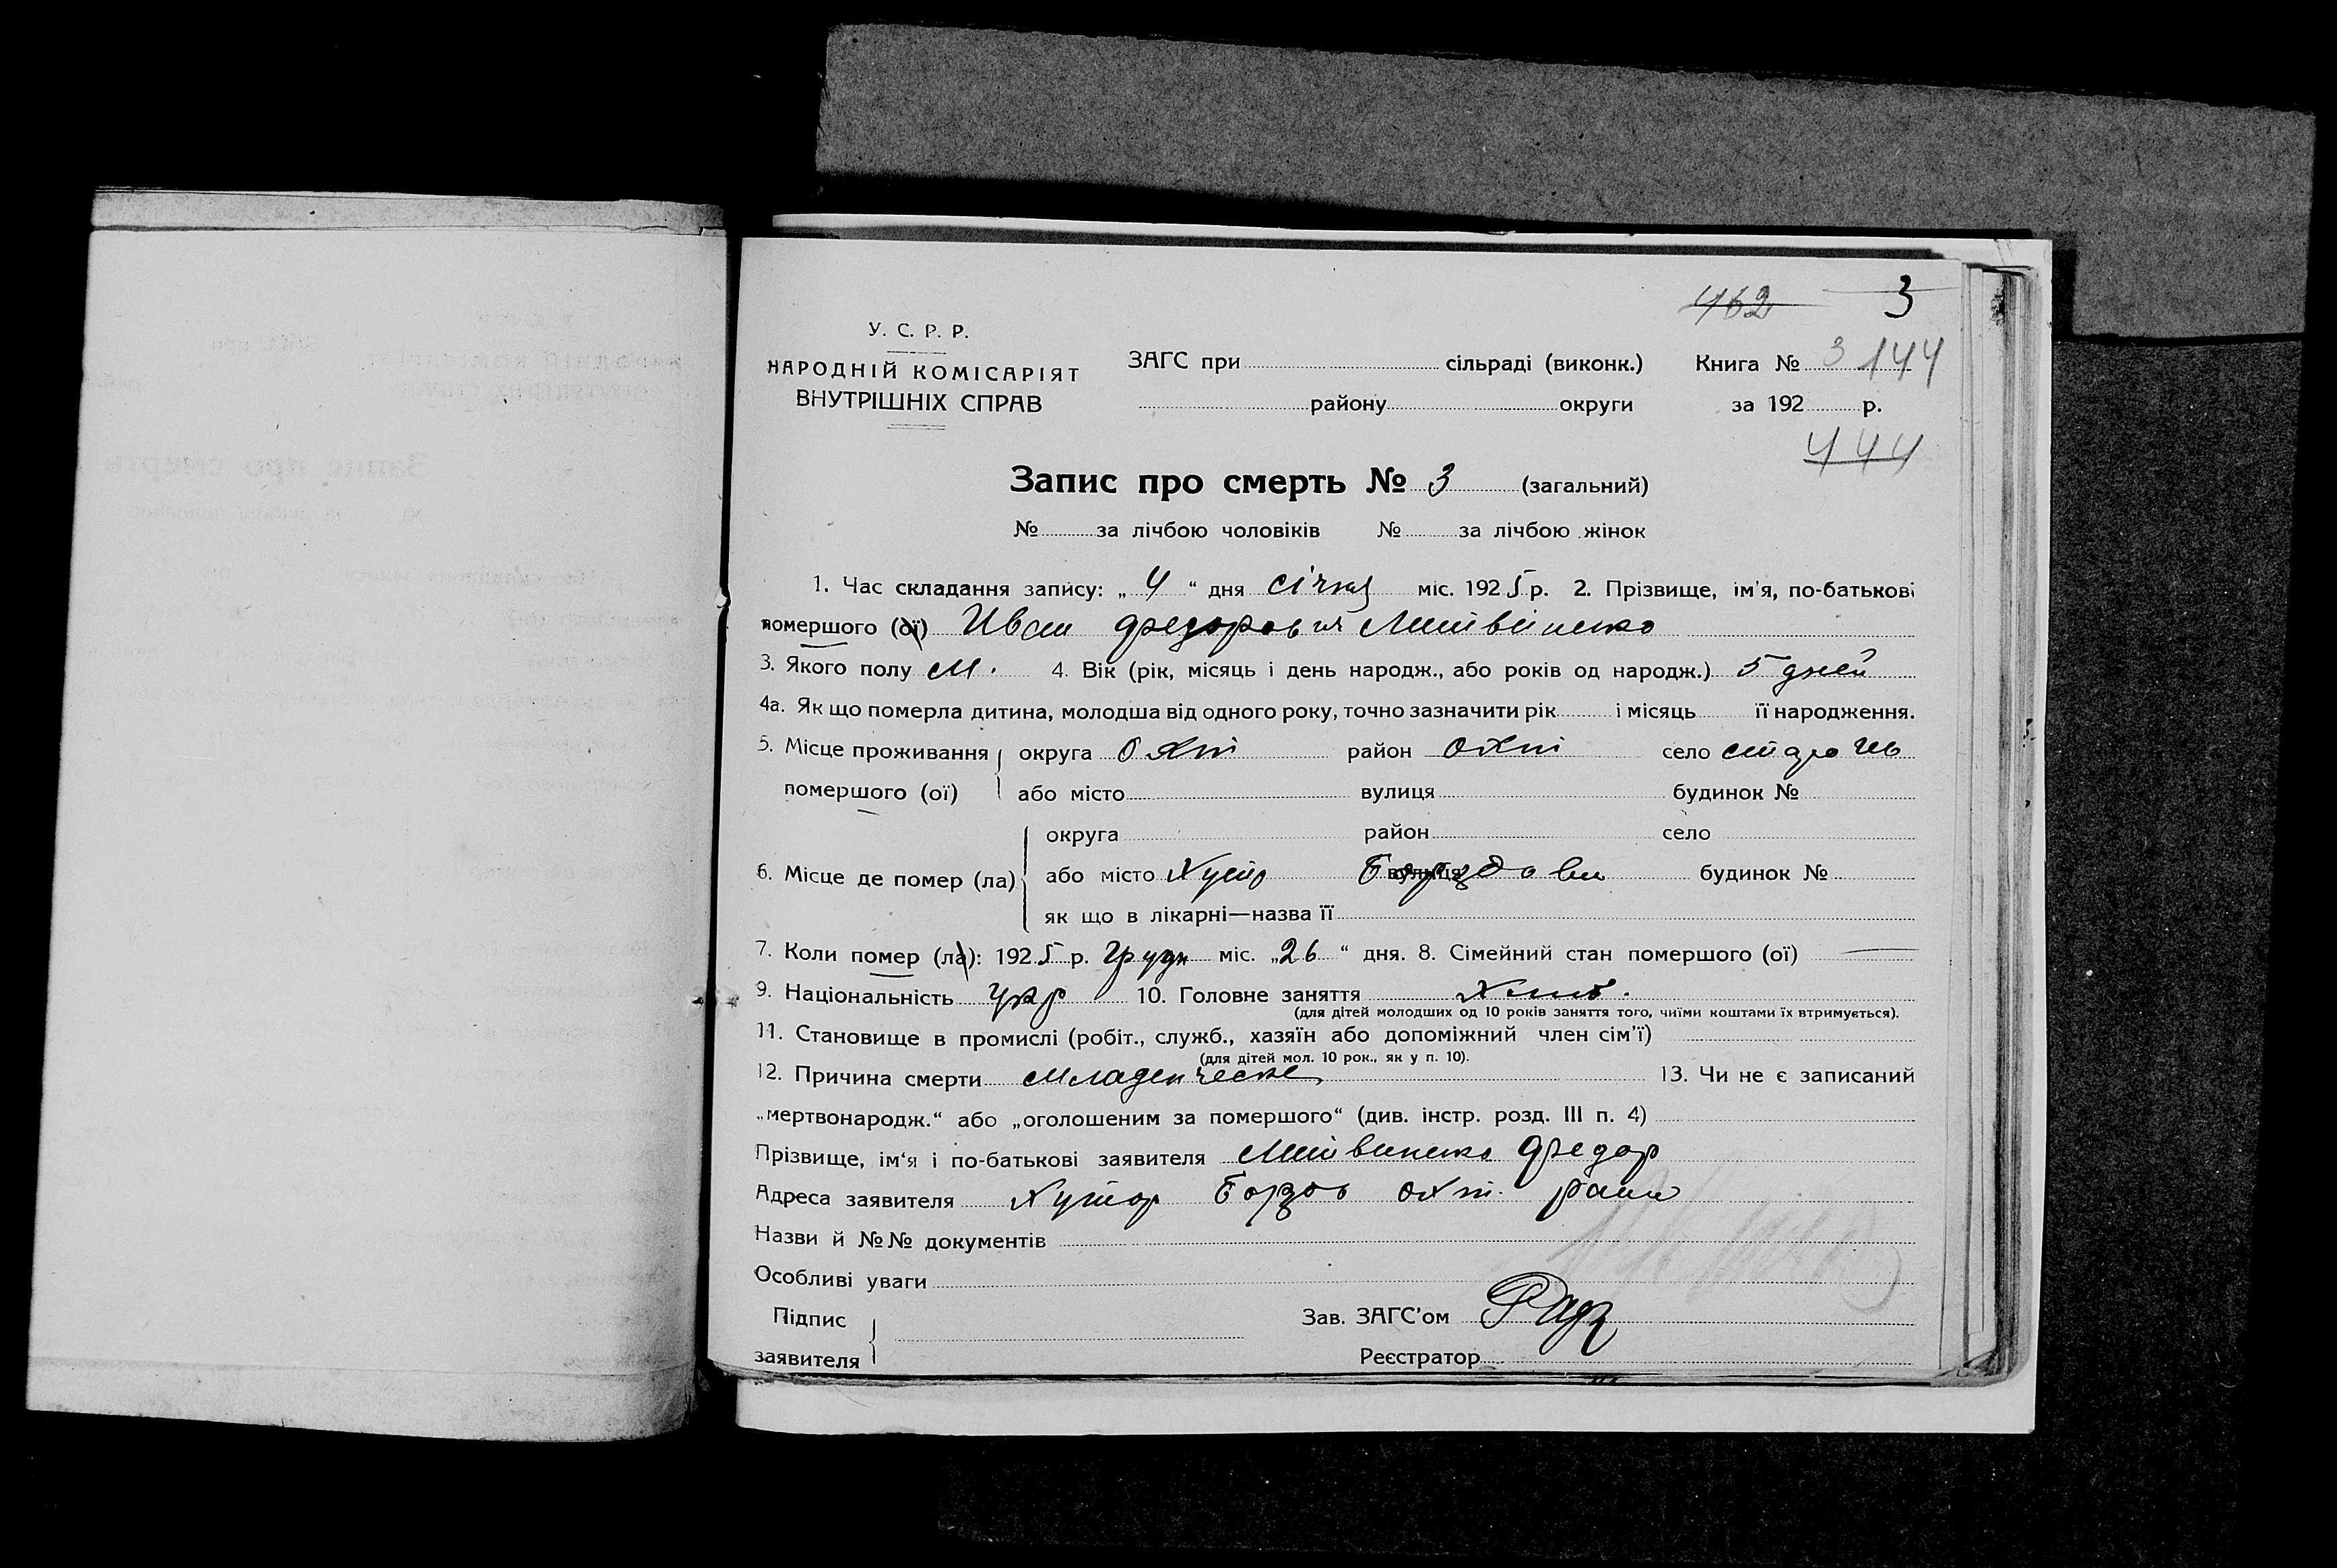 462 3
У. С. Р. Р.
НАРОДНІЙ КОМІСАРІЯТ
ВНУТРІШНІХ СПРАВ
ЗАГС при сільраді (виконк.)
району округи
Книга № 3 144
за 192 р.
444
Запис про смерть № 3 (загальний)
№ за лічбою чоловіків № за лічбою жінок
1. Час складання запису: „ 4 “ дня січня міс. 1925 р. 2. Прізвище, ім'я, по-батькові
помершого (ої) Иван Федоровия Литвиненко
3. Якого полу М. 4. Вік (рік, місяць і день народж., або років од народж.) 5 дней
4а. Як що померла дитина, молодша від одного року, точно зазначити рік і місяць її народження.
5. Місце проживання округа Охт район Охт село
помершого (ої) або місто вулиця будинок №
округа район село
6. Місце де помер (ла) або місто Хутір вулиця будинок №
як що в лікарні—назва її
7. Коли помер (ла): 1925 р. Грудн міс. „26 “ дня. 8. Сімейний стан помершого (ої) —
9. Національність Укр 10. Головне заняття Хліб.
(для дітей молодших од 10 років заняття того, чиїми коштами їх втримується).
11. Становище в промислі (робіт., служб., хазяїн або допоміжний член сім'ї)
(для дітей мол. 10 рок., як у п. 10).
12. Причина смерти Младенческе 13. Чи не є записаний
„мертвонародж.“ або „оголошеним за помершого“ (див. інстр. розд. III п. 4)
Прізвище, ім'я і по-батькові заявителя Литвиненко Федор
Адреса заявителя Хутор Борзов Охт.
Назви й №№ документів
Особливі уваги
Підпис
заявителя
Зав. ЗАГС'ом
Реєстратор